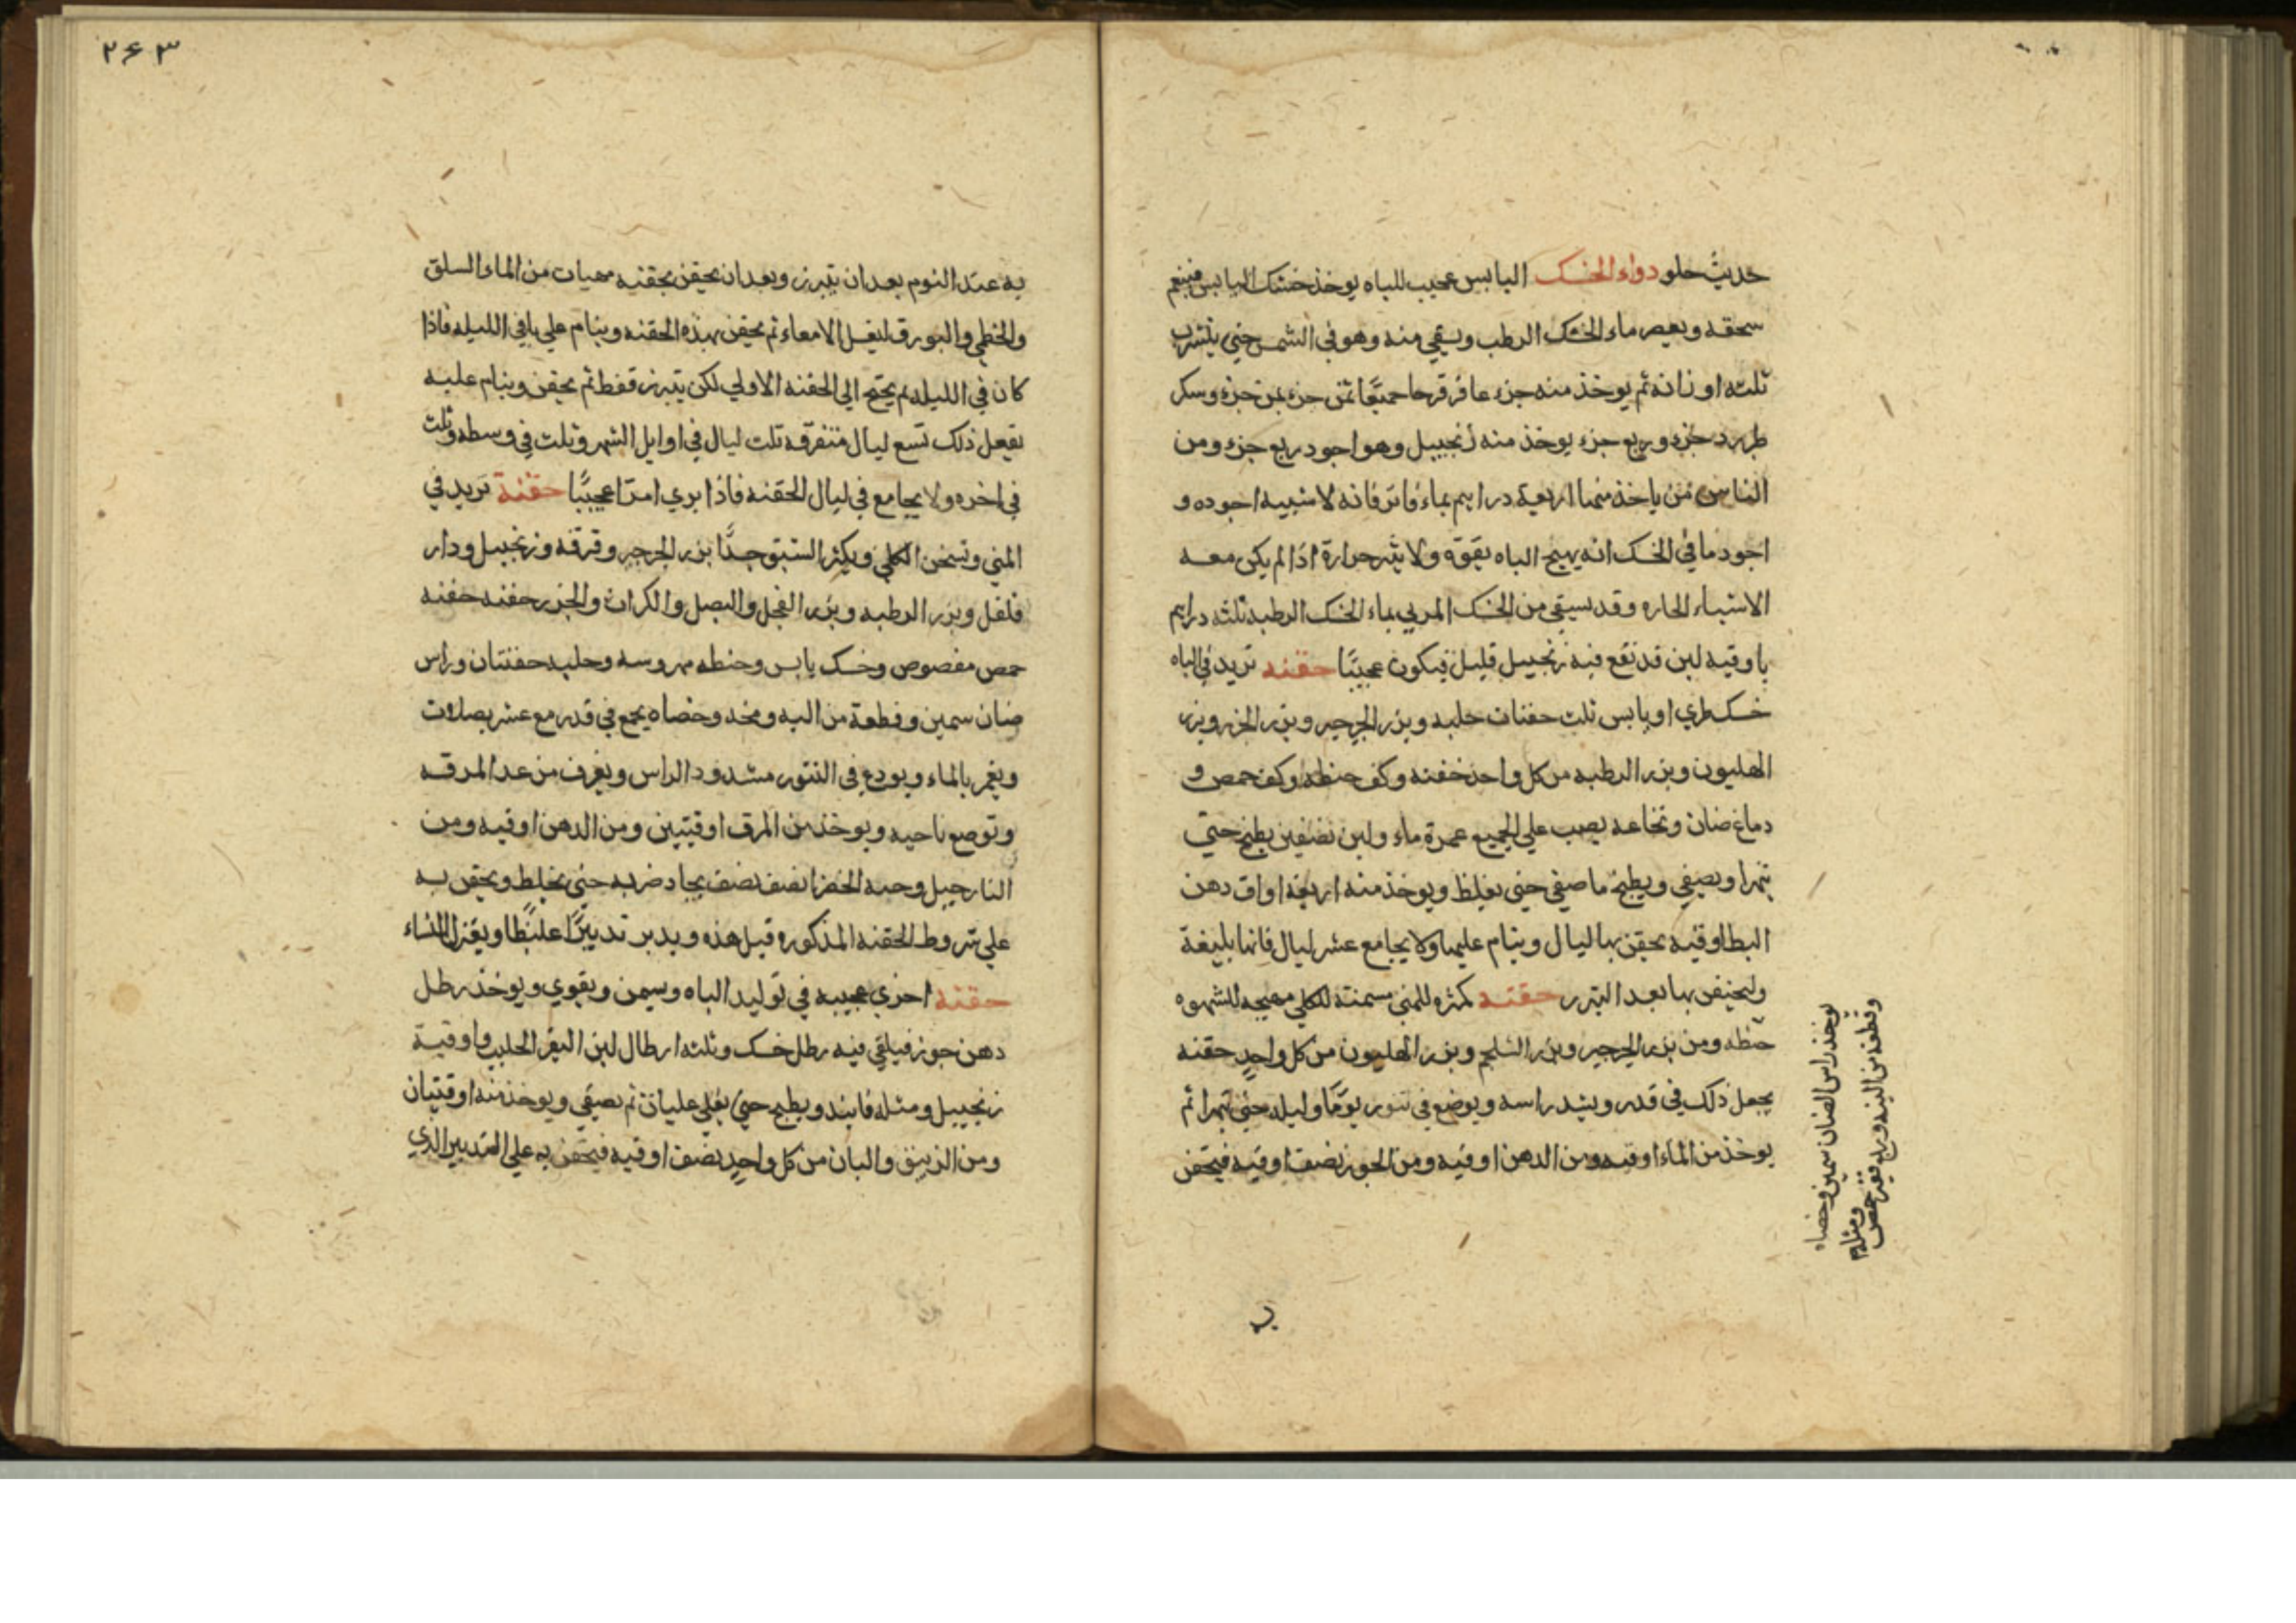 حديث حلو دواء الخسك اليابس عجيب للباه يوخذ خسك اليابس فينعم
سحقه ويعصر ماء الخسك الرطب ويسقي منه وهو في الشمس حتي يتشرب
ثلثه اوزانه ثم يوخذ منه جزء عاقرقرحا ثمن جزء وسكر
طبرزد جزء وربع جزء يوخذ منه زنجبيل وهو اجود ربع جزء ومن
الناس من ياخذ منها اربعة دراهم بماء فاتر فانه لا شبيه اجوده و
اجود ما في الخسك انه يهيج الباه بقوة ولا يثير حرارة اذا لم يكن معه
الاشياء الحاره وقد يسقي من الخسك المربي بماء الخسك الرطب ثلثه دراهم
باوقيه لبن قد نقع فيه زنجبيل قليل فيكون عجيبًا حقنه تزيد في الباه
خسك طري او يابس ثلث حفنات حلبه وبزر الجرجير وبزر الجزر وبزر
الهليون وبزر الرطبه من كل واحد حفنه وكف حنطه وكف حمص و
دماغ ضان ونخاعه يصب علي الجميع غمرة ماء ولبن نصفين يطبخ حتي
يتهرا ويصفي ويطبخ ما صفي حتي يغلظ ويوخذ منه اربعة اواق دهن
البط اوقيه يحقن بها ليال وينام عليها ولا يجامع عشر ليال فانها بليغة
وليحتقن بها بعد التبرز حقنه مكثره للمني مسمنة للكلي مهيجه للشهوه
حنطه ومن بزر الجرجير وبزر الشلجم وبزر الهليون من كل واحدٍ حفنه
يجعل ذلك في قدر ويشد راسه ويوضع في تنور يومًا وليله حتي يتهرا ثم
يوخذ من الماء اوقيه ومن الدهن اوقيه ومن الجوز نصف اوقيه فيحقن
يوخذ راس الضان سمين وخصاه
وقطعه من اليه وربع قفيز حمص
ومثله
به
٢٦٣
به عند النوم بعد ان يتبرز وبعد ان يحقن بحقنه مهيات من الماء السلق
والخطمي والبورق ليغسل الامعاء ثم يحقن بهذه الحقنه وينام علي باقي الليله فاذا
كان في الليله لم يحتج الي الحقنه الاولي لكن يتبرز فقط ثم يحقن وينام عليه
يفعل ذلك تسع ليال متفرقه ثلث ليال في اوايل الشهر وثلث في وسطه وثلث
في اخره ولا يجامع في ليال الحقنه فاذا يري امرًا عجيبًا حقنة تزيد في
المني وتسخن الكلي ويكثر الشبق جدًّا بزر الجرجير وقرفه وزنجبيل ودار
فلفل وبزر الرطبه وبزر الفجل والبصل والكراث والجزر حفنه حفنه
حمص مفصوص وخسك يابس وحنطه مهروسه وحلبه حفنتان وراس
ضان سمين وقطعة من اليه ومخه وخصاه يجمع في قدر مع عشر بصلات
ويغمر بالماء ويودع في التنور مشدود الراس ويغرف من غد المرقه
وتوضع ناحيه ويوخذ من المرق اوقيتين ومن الدهن اوقيه ومن
النارجيل وحبه الخضرا نصف نصف يجاد ضربه حتي يختلط ويحقن به
علي شروط الحقنه المذكوره قبل هذه ويدبر تدبيرًا غليظًا ويعتزل النساء
حقنة اخري عجيبه في توليد الباه وتسمن ويقوي ويوخذ رطل
دهن جوز فيلقي فيه رطل خسك وثلثه ارطال لبن البقر الحليب واوقية
زنجبيل ومثله فانيذ ويطبخ حتي يغلي غليان ثم يصفي ويوخذ منه اوقيتان
ومن الزنبق والبان من كل واحدٍ نصف اوقيه فيحقن به علي التدبير الذي